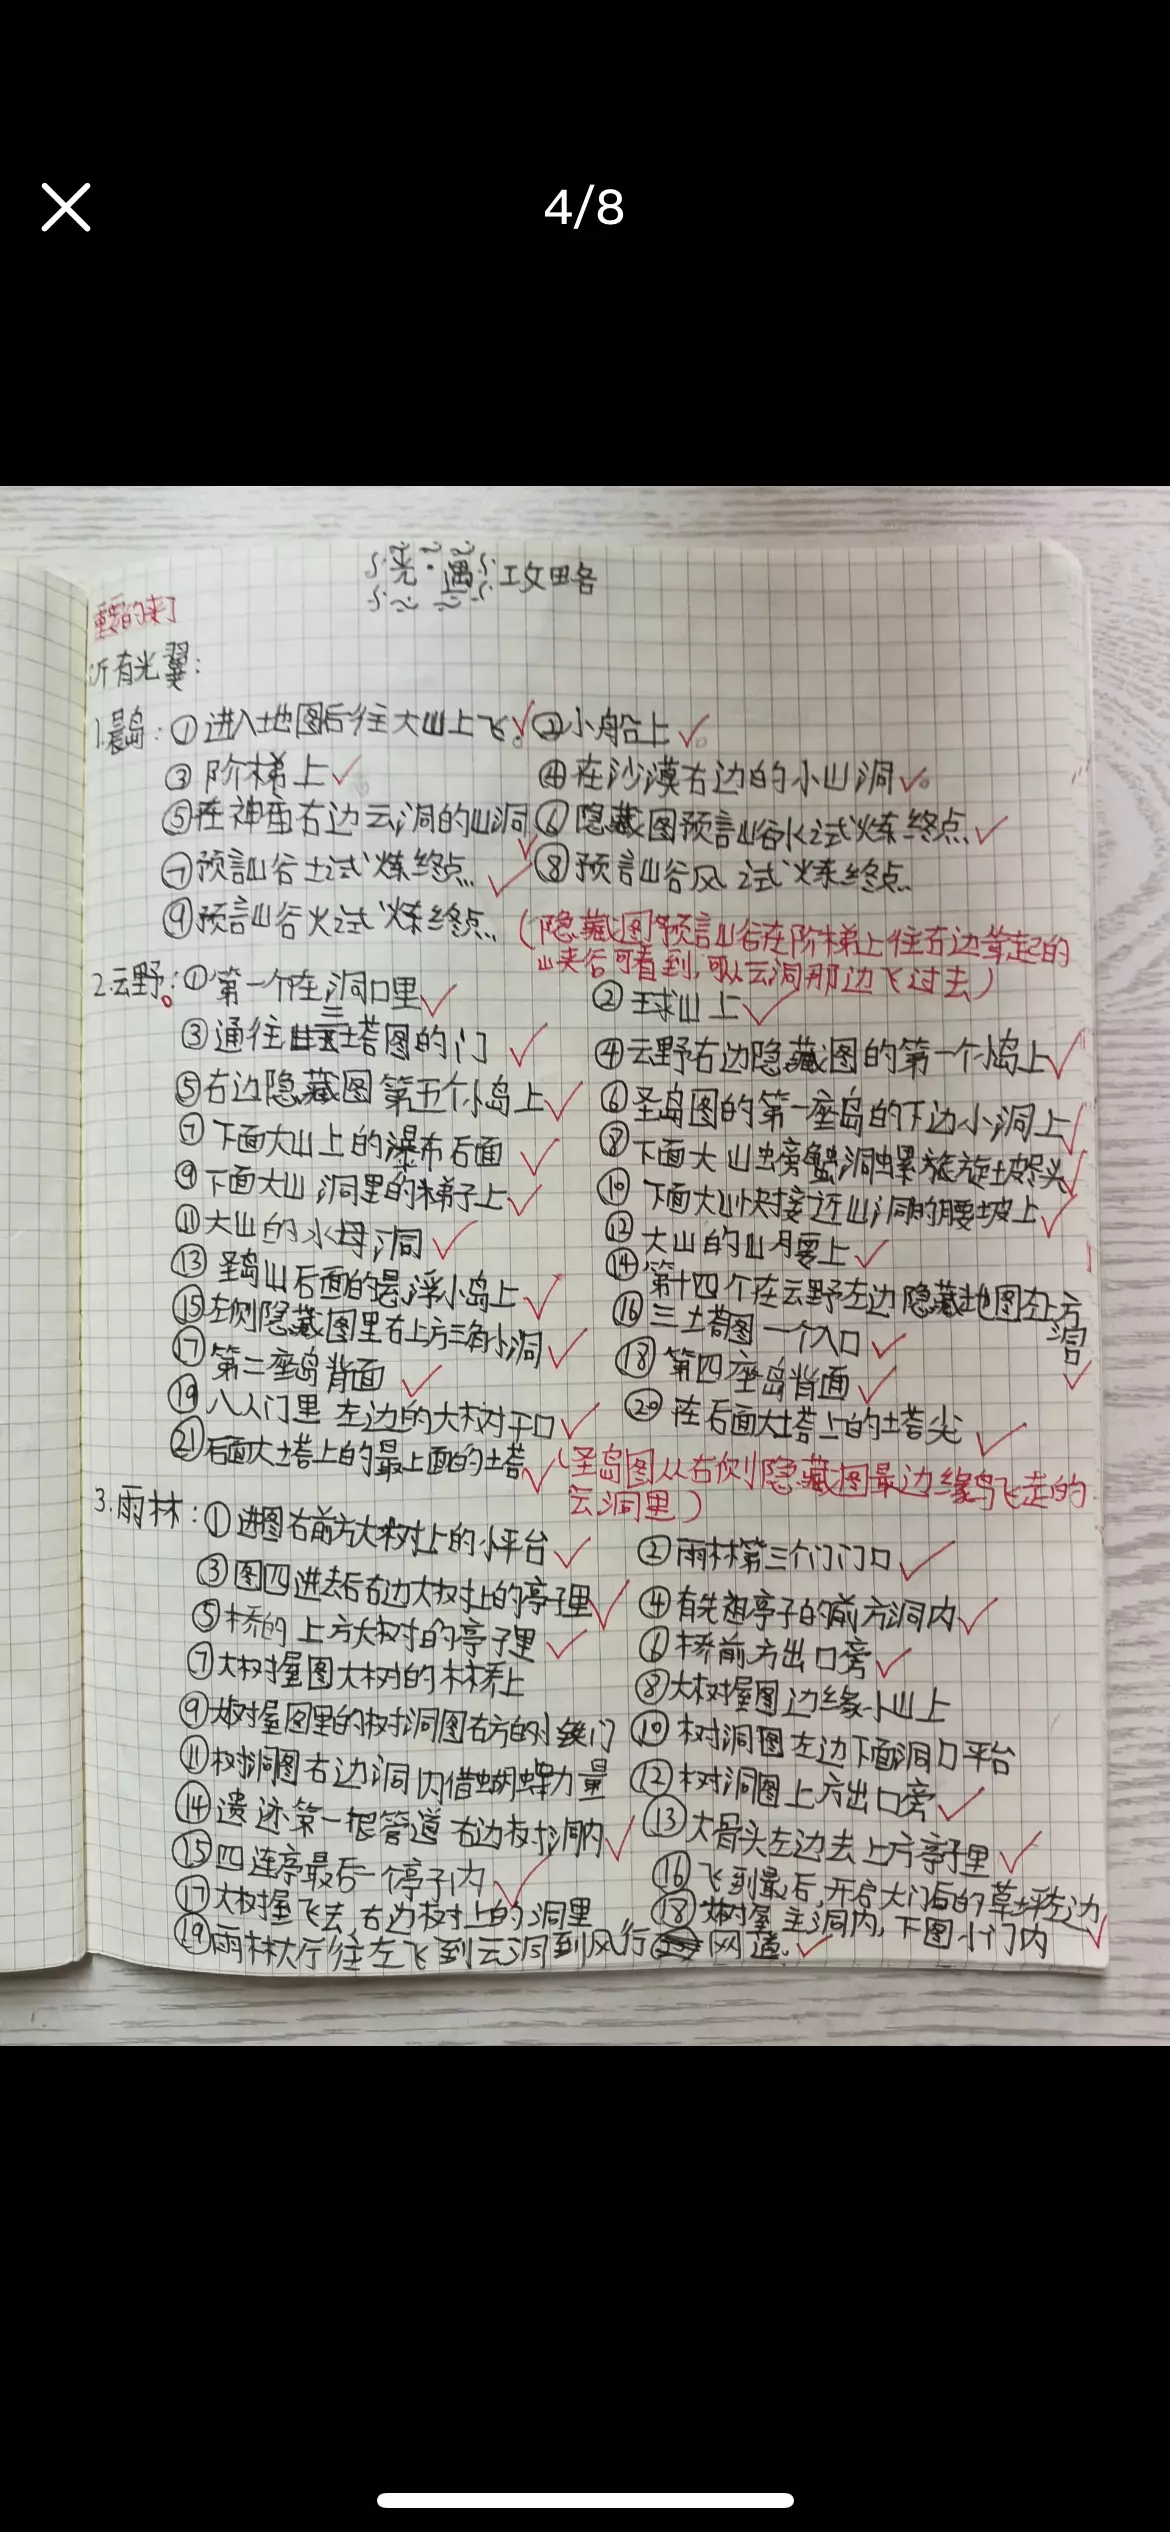 4/8
光·遇 攻略
重要的来了
所有光翼:
1.晨岛: ①进入地图后往大山上飞。 ②小船上
③阶梯上 ④在沙漠右边的小山洞
⑤在神庙右边云洞的山洞 ⑥隐藏图预言山谷水试炼终点
⑦预言山谷土试炼终点.. ⑧预言山谷风试炼终点..
⑨预言山谷火试炼终点.. (隐藏图预言山谷在阶梯上往右边耸起的
山夹谷可看到,可以云洞那边飞过去)
2.云野: ①第一个在洞口里 ②球山上
③通往三塔图的门 ④云野右边隐藏图的第一个小岛上
⑤右边隐藏图第五个小岛上 ⑥圣岛图的第一座岛的下边小洞上
⑦下面大山上的瀑布后面 ⑧下面大山螃蟹洞螺旋坡尽头
⑨下面大山洞里的梯子上 ⑩下面大山快接近山洞的腰坡上
⑪大山的水母洞 ⑫大山的山腰上
⑬圣岛山后面的悬浮小岛上 ⑭第十四个在云野左边隐藏地图左上方洞口
⑮左侧隐藏图里右上方三角小洞 ⑯三土塔图一个入口
⑰第二座岛背面 ⑱第四座岛背面
⑲八人门里左边的大树干口 ⑳在后面大土塔上的土塔尖
㉑后面大土塔上的最上面的土塔 (圣岛图从右侧隐藏图最边缘鸟飞走的
云洞里)
3.雨林: ①进图右前方大树上的小平台 ②雨林第三个门门口
③图四进去后右边大树上的亭子里 ④有先祖亭子的前方洞内
⑤桥的上方大树的亭子里 ⑥桥前方出口旁
⑦大树屋图大树的木桥上 ⑧大树屋图边缘小山上
⑨大树屋图里的树洞图右方的小铁门 ⑩树洞图左边下面洞口平台
⑪树洞图右边洞内借蝴蝶力量 ⑫树洞图上方出口旁
⑭遗迹第一根管道右边树洞内 ⑬大骨头左边去上方亭子里
⑮四连亭最后一个亭子内 ⑯飞到最后,开启大门后的草坪左边
⑰大树屋飞去,右边树上的洞里 ⑱大树屋主洞内,下图小门内
⑲雨林大厅往左飞到云洞到风行网道.